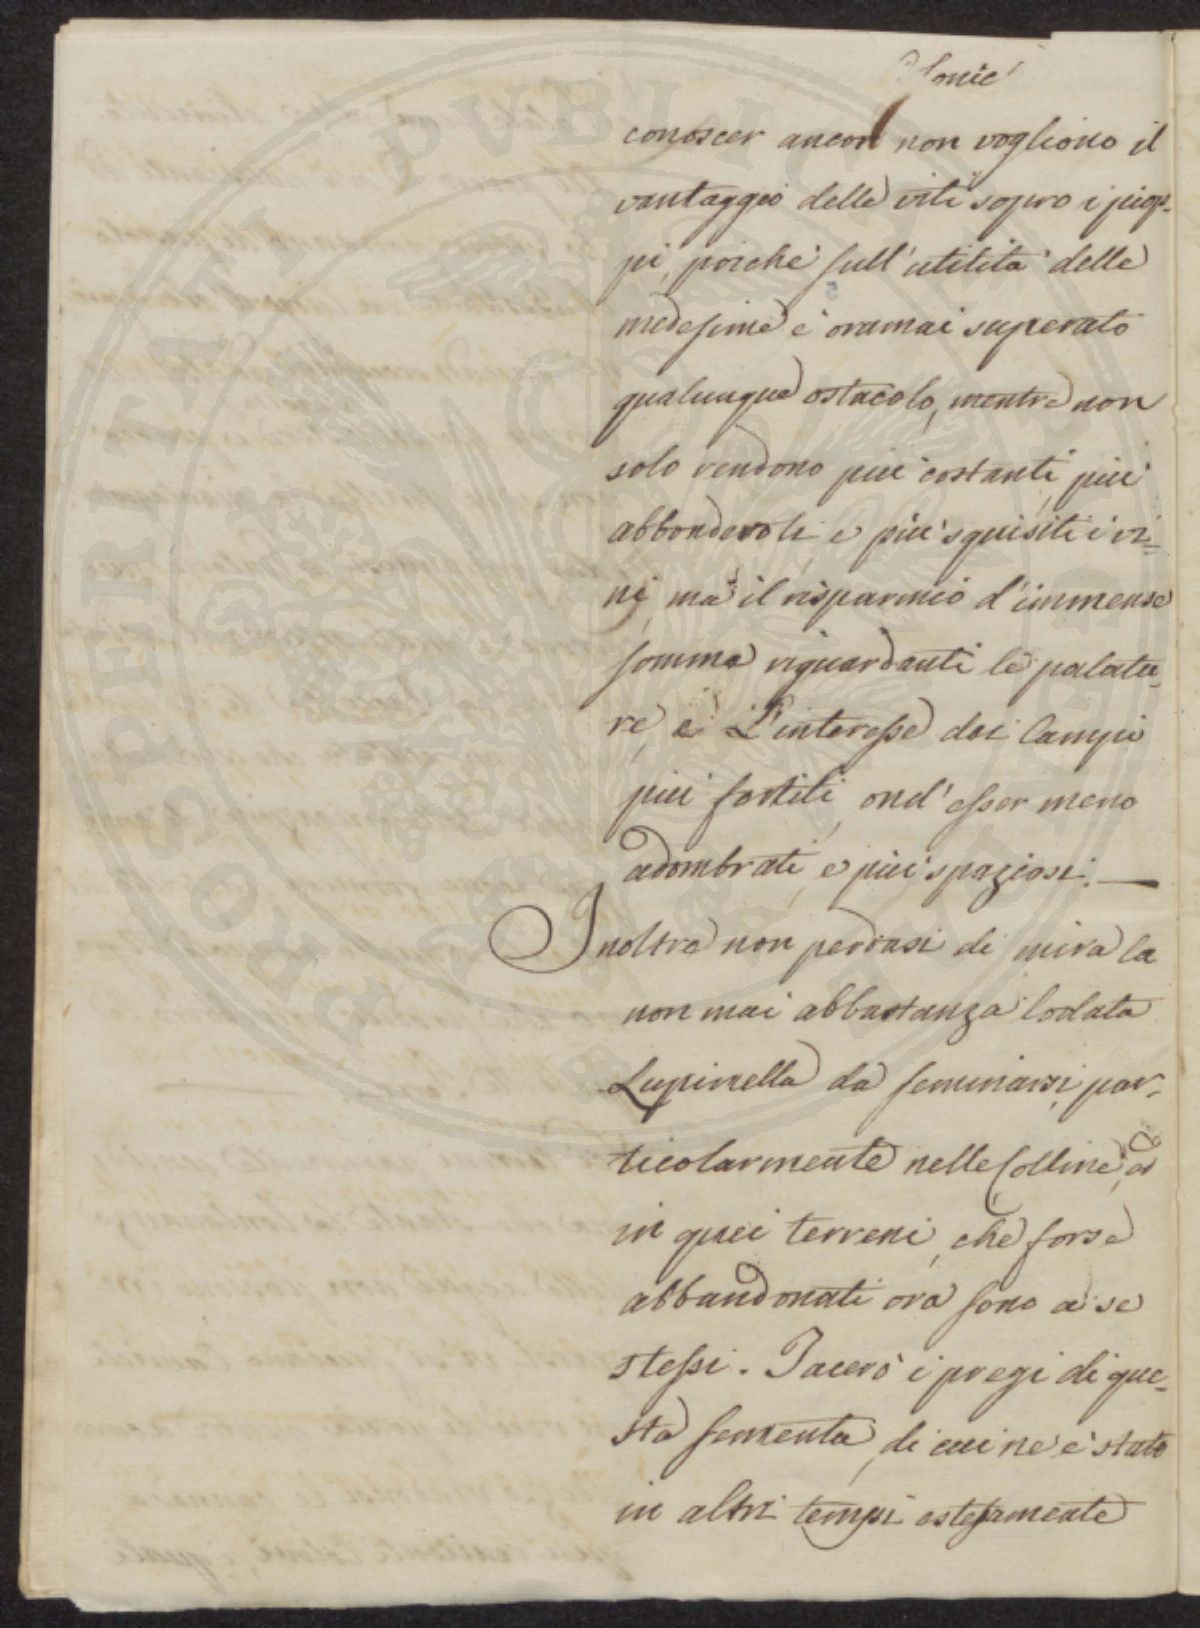 Colonie
conoscer ancora non vogliono il
vantaggio delle viti sopro i piop-
pi, poiche' sull'utilita' delle
medesime e' oramai superato
qualunque ostacolo, mentre non
solo rendono piu' costanti, piu'
abbondevoli e piu' squisiti i vi-
ni, ma il risparmio d'immense
somme riguardanti le palatu-
re, e' L'interesse dei Campi
piu' fertili, ond'esser meno
adombrati, e piu' spaziosi. —
Inoltre non perdasi di mira la
non mai abbastanza lodata
Lupinella da seminarsi, par-
ticolarmente nelle Colline, ed
in quei terreni, che forse
abbandonati ora sono a se
stessi. Tacerò i pregi di que-
sta sementa, di cui ne e' stato
in altri tempi estesamente
PROSPERITATI PVBLICAE AVGENDAE